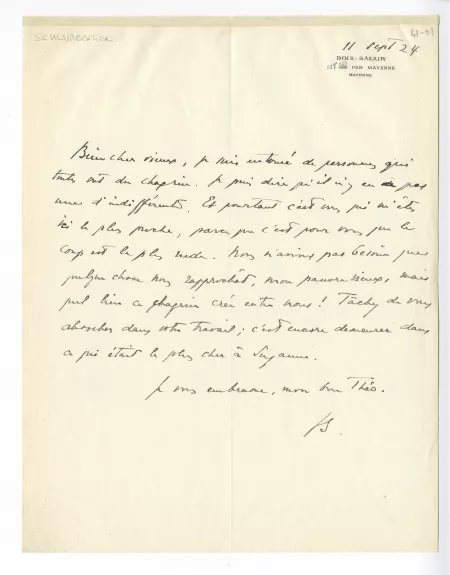 SCHLUMBERGER
11 Sept 24
BOIS-SALAIR
PAR MAYENNE
MAYENNE
Bien cher vieux, je suis entouré de personnes qui
toutes ont du chagrin. Je puis dire qu'il n'y en a pas
une d'indifférente. Et pourtant c'est vous qui m'êtes
ici le plus proche, parce que c'est pour vous que le
coup est le plus rude. Nous n'avions pas besoin que
quelque chose nous rapprochât, mon pauvre vieux, mais
quel lien ce chagrin crée entre nous ! Tâchez de vous
absorber dans votre travail ; c'est encore demeurer dans
ce qui était le plus cher à Suzanne.
Je vous embrasse, mon bon Théo.
JS.